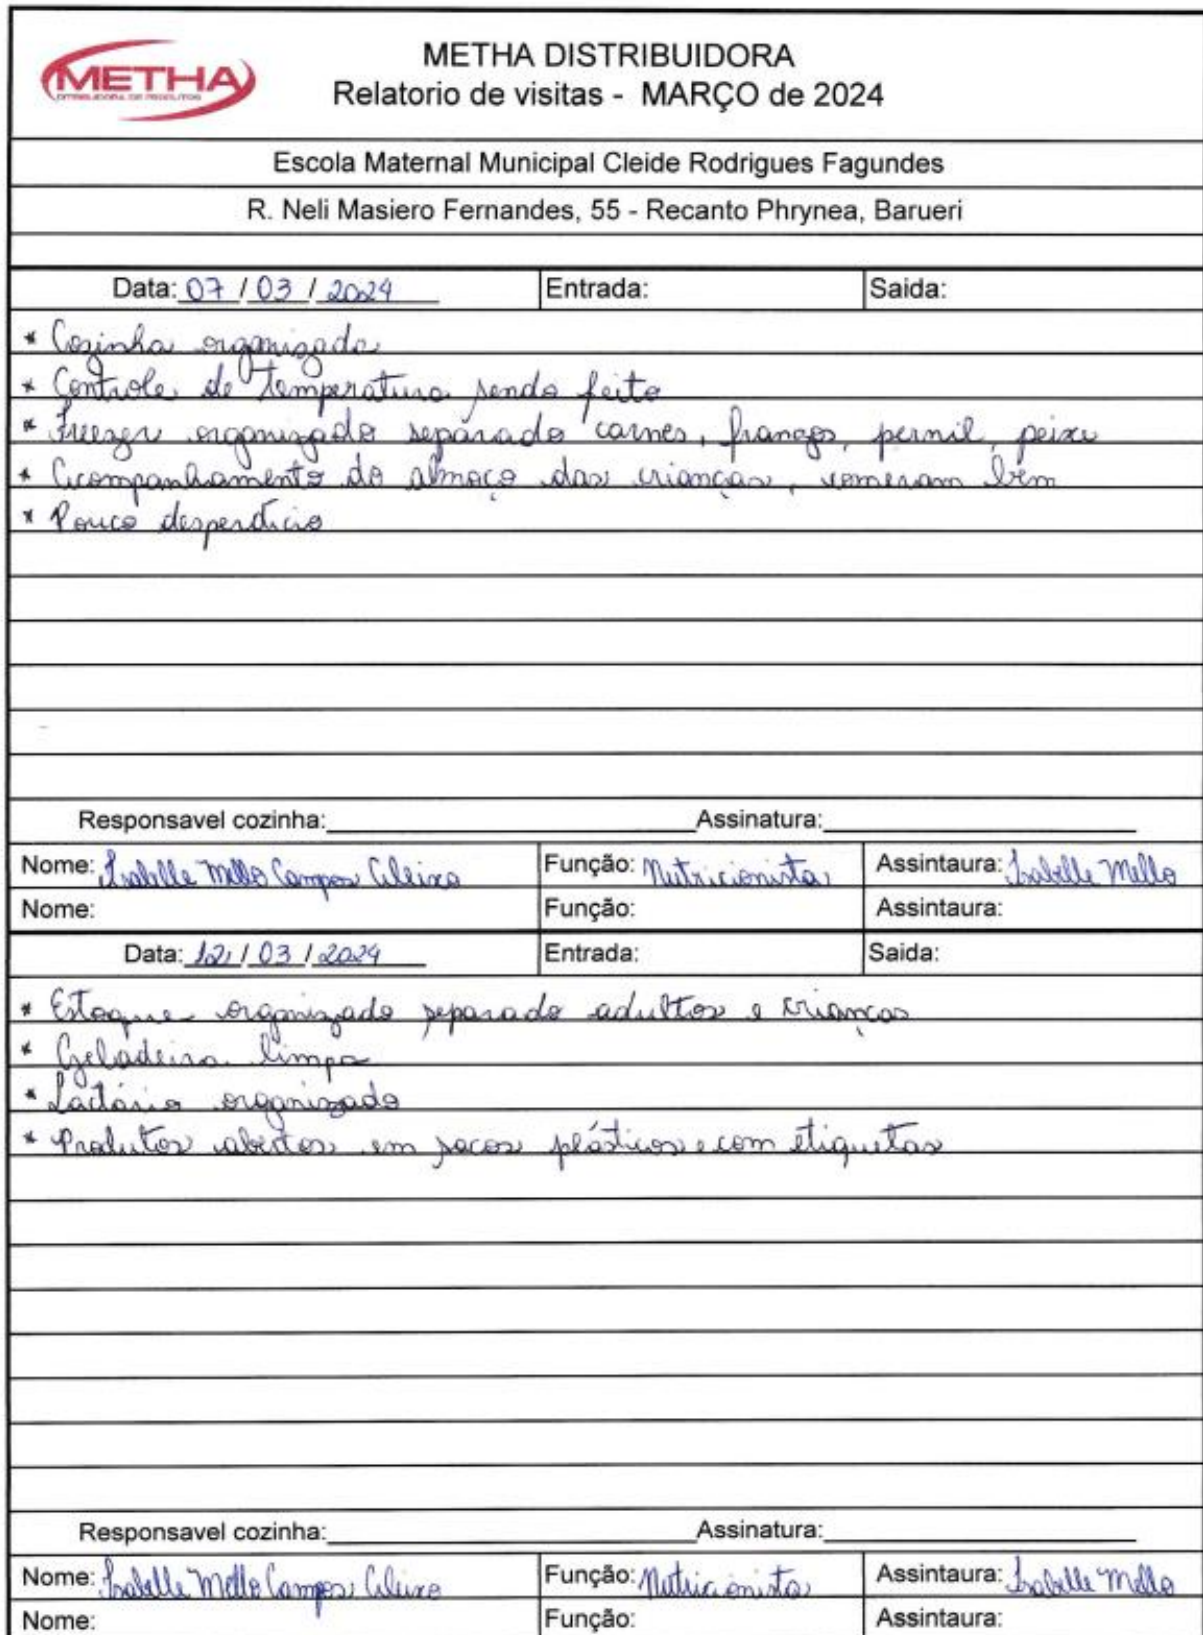 METHA
DISTRIBUIDORA DE PRODUTOS
METHA DISTRIBUIDORA
Relatorio de visitas - MARÇO de 2024
Escola Maternal Municipal Cleide Rodrigues Fagundes
R. Neli Masiero Fernandes, 55 - Recanto Phrynea, Barueri
Data: 07 / 03 / 2024 Entrada: Saida:
* Cozinha organizada
* Controle de temperatura sendo feito
* Freezer organizado separado carnes, frangos, pernil, peixe
* Acompanhamento do almoço das crianças, comeram bem
* Pouco desperdício
Responsavel cozinha: Assinatura:
Nome: Isabelle Mello Campos Função: Nutricionista Assintaura: Isabelle Mello
Nome: Função: Assintaura:
Data: 12 / 03 / 2024 Entrada: Saida:
* Estoque organizado separado adultos e crianças
* Geladeira limpa
* Lactário organizado
* Produtos abertos em sacos plásticos e com etiquetas
Responsavel cozinha: Assinatura:
Nome: Isabelle Mello Campos Função: Nutricionista Assintaura: Isabelle Mello
Nome: Função: Assintaura: